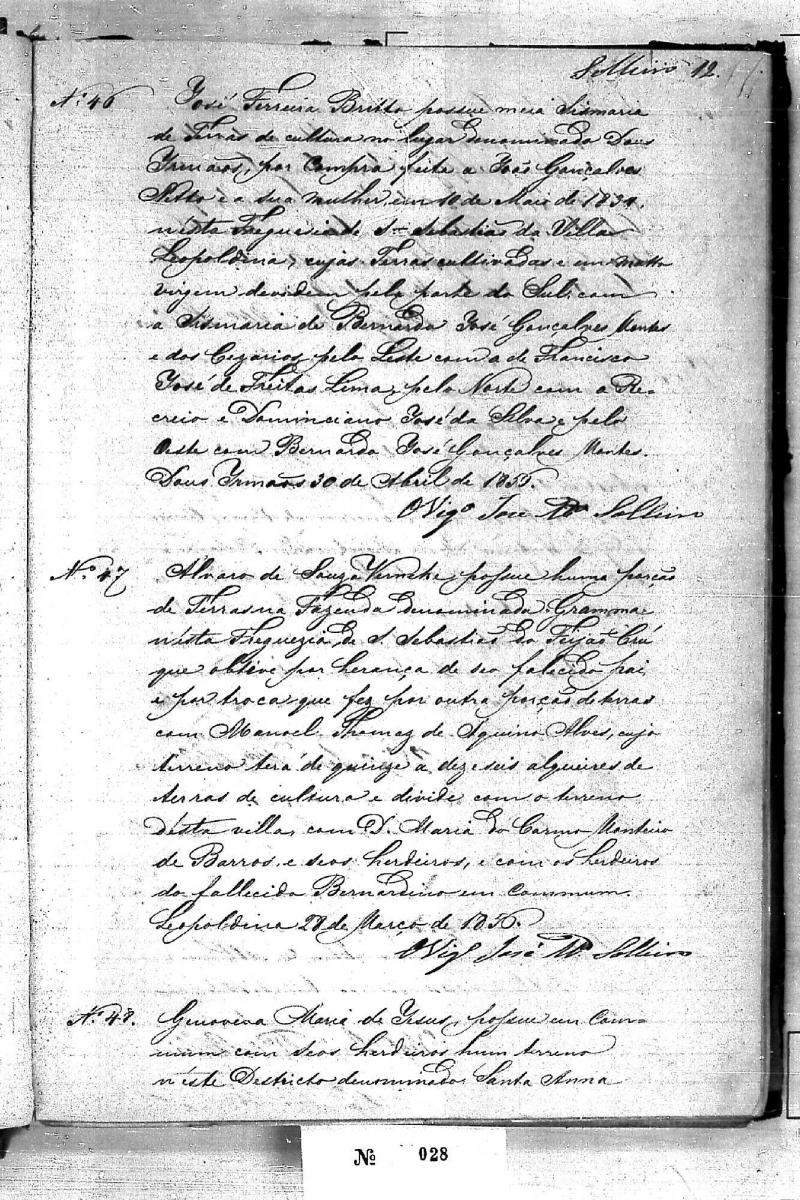 Solleiro 12.
Nº 46 José Ferreira Britto possue meia Sismaria
de Terras de cultura no lugar denominado Dous
Yrmãos, por compra feita a João Gonçalves
Netto e a sua mulher, em 10 de Maio de 1834.
nésta Freguesia de S. Sebastião da Villa
Leopoldina, cujas Terras cultivadas e em matto
virgem devidem pela parte do Sul com
a Sismaria de Bernardo José Gonçalves Montes
e dos Cezarios, pelo Leste com a de Francisco
José de Freitas Lima, pelo Norte com o Re-
creio e Dominciano José da Silva e pelo
Oeste com Bernardo José Gonçalves Montes.
Dous Yrmãos 30 de Abril de 1856.
O Vigº José Solleiro
Nº 47 Alvaro de Souza possue huma porção
de Terras na Fazenda denominada Gramma
nésta Freguezia, de S. Sebastião do Feijão Crú
que obtive por herança de seo falecido pai
e por troca que fez por outra porção de terras
com Manoel Thomaz de Aquino Alves, cujo
terreno terá de quinze a dezeseis alqueires de
terras de cultura e divide com o terreno
désta villa, com D. Maria do Carmo Monteiro
de Barros e seos herdeiros, e com os herdeiros
do fallecido Bernardino em commum.
Leopoldina 28 de Março de 1856.
O Vigº José Mª Solleiro
Nº 48. Genoveva Maria de Jesus, possue em Com-
mum com seos herdeiros hum terreno
n'éste Destricto denominado Santa Anna
Nº 028